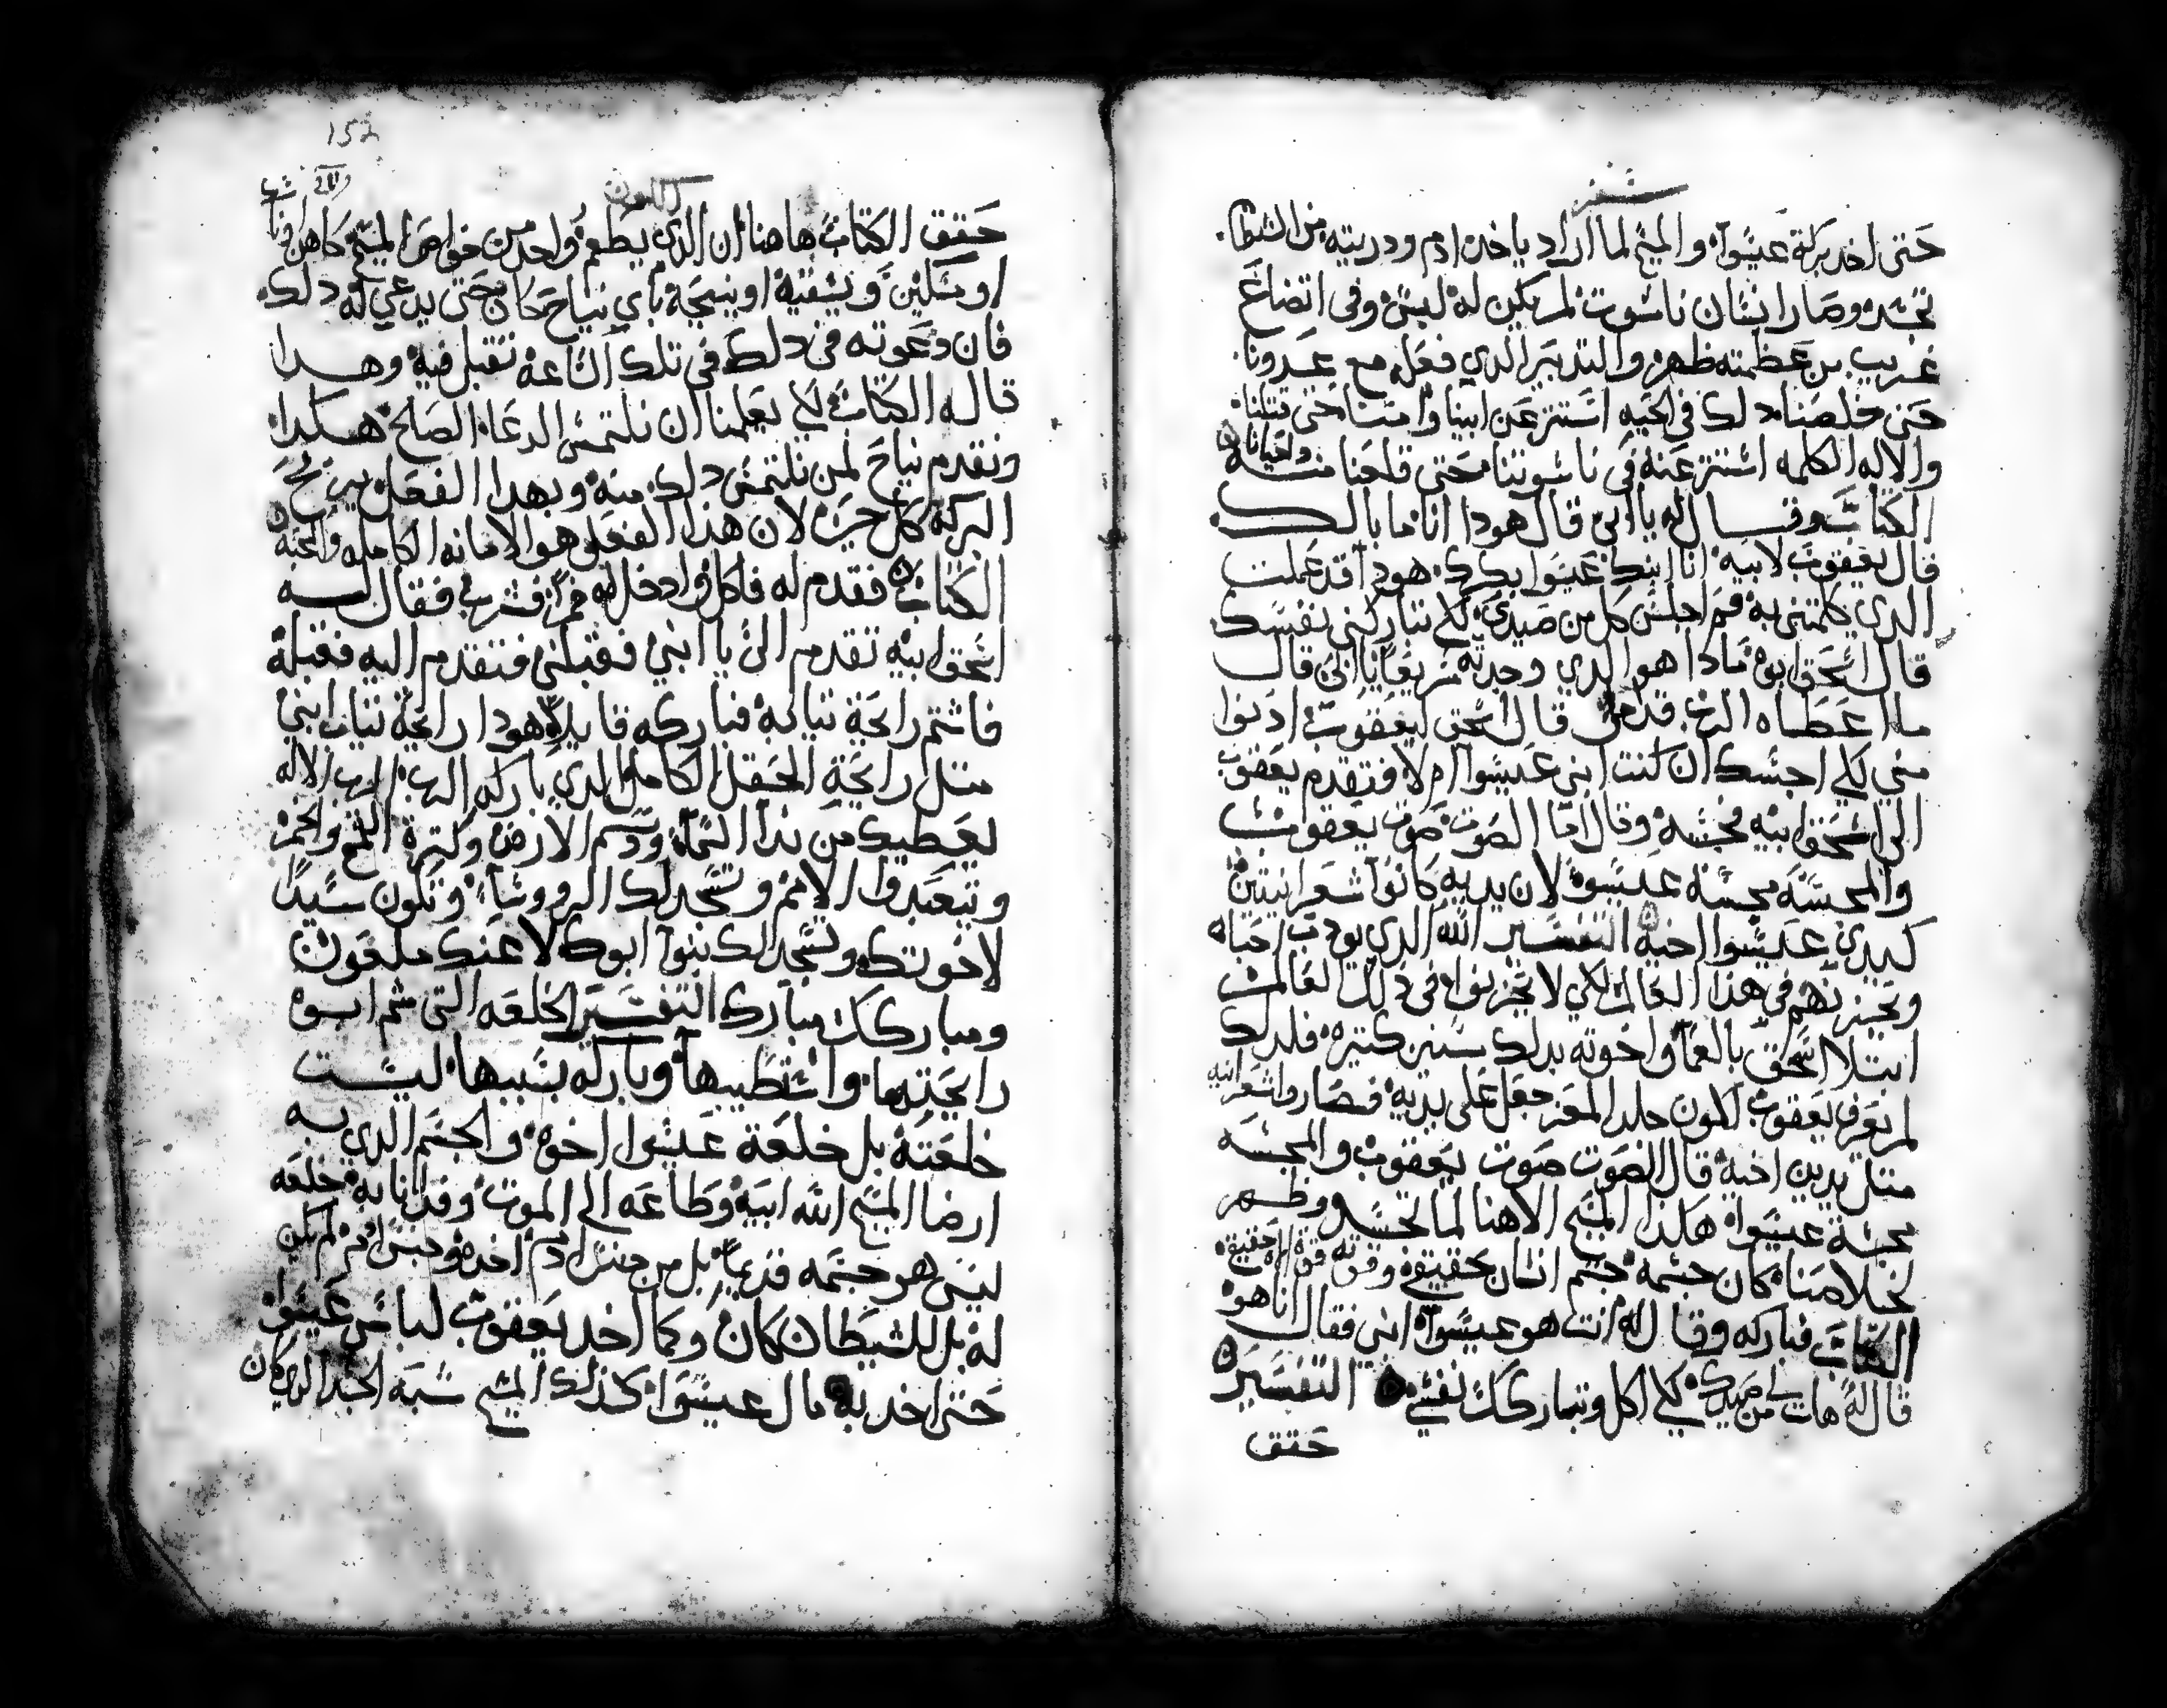 حتى اخد بركة عيسوا والمسيح لما اراد ياخد ادم ودريته من الشيطان
تجسد وصار انسان ناسوت لم يكن له لبس وفى اتضاع
غريب من عظمته ظهر والتدبير الدي فعله مع عدونا
حتى خلصنا دلك في الحيه استتر عن ابينا وامنا حتى قتلنا
والاله الكلمه استتر عنه في ناسوتنا حتى قلعنا منه واحيانا
الكتاب وقال له يا ابي قال هودا انا ما بالك
قال يعقوب لابيه انا ابنك عيسوا بكرك هودا قد عملت
الدي كلمتني به قم اجلس كل من صيدي لكي تباركني نفسك
قال اسحق ابوه مادا هوا الدي وجدته سريعا يا ابني قال
ما اعطاه الرب قدامي قال اسحق ليعقوب ادنوا
مني لكي اجسك ان كنت ابني عيسوا ام لا فتقدم يعقوب
الي اسحق ابيه فجسه وقال اما الصوت صوت يعقوب
والمجسه مجسة عيسوا لان يديه كانوا شعرانيتين
كيدي عيسوا اخيه التفسير الله الدي يودب احباه
ويحزنهم في هذا العالم لكي لا يحزنوا في ذلك العالم
ابتلا اسحق بالعما واخوته بدلك سنين كتيره فلدلك
لم يعرف يعقوب لكون جلد المعز جعل على يديه فصاروا شعرانيه
متل يدين اخيه قال الصوت صوت يعقوب والمجسه
مجسة عيسوا هكذا المسيح الاهنا لما تجسد وظهر
لخلاصنا كان جسمه جسم انسان حقيقي وقوته قوة الاه حقيقي
الكتاب فباركه وقال له انت هو عيسوا ابني فقال انا هو
قال له هات لي من صيدك لكي اكل وتباركك نفسي التفسير
حقق
152
حقق الكتاب هاهنا ان الدي يطعم واحد من خواص المسيح كاهن كان
او مسكين ويسقيه او ينيحه باي نياح كان حتى يدعي له دلك
فان دعوته في دلك في تلك الساعة تقبل فيه وهدا
قاله الكتاب لكي يعلمنا ان نلتمس الدعا الصالح هكدا
ونقدم نياح لمن نلتمس دلك منه وبهدا الفعل نربح
البركه كل حين لان هذا الفعل هو الامانه الكامله والمحبه
الكتاب فقدم له فاكل وادخل له خمرا فشرب فقال له
اسحق ابيه تقدم الي يا ابني فقبلني فتقدم اليه فقبله
فاشتم رايحة تيابه فباركه قايلا هودا رايحة تياب ابني
متل رايحة الحقل الكامل الدي باركه الرب الرب الاله
يعطيك من ندا السماء ودسم الارض وكترة القمح والخمر
وتتعبد لك الامم وتسجد لك الروسا وتكون سيدا
لاخوتك وتسجد لك بنوا ابوك لاعنك ملعون
ومباركك مبارك التفسير الخلعه التي شم ابوه
رايحتها واستطيبها وباركه بسببها ليست
خلعته بل خلعة عيسوا اخوه والجسم الدي به
ارضا المسيح الله ابيه وطاعه الي الموت وفدانا به خلعه
ليس هو جسمه قديما بل من جنس ادم اخده وجنس ادم لم يكن
له بل للشيطان كان وكما اخد يعقوب لباس عيسوا
حتى اخد به مال عيسوا كذلك المسيح شبه الجسد الدي كان